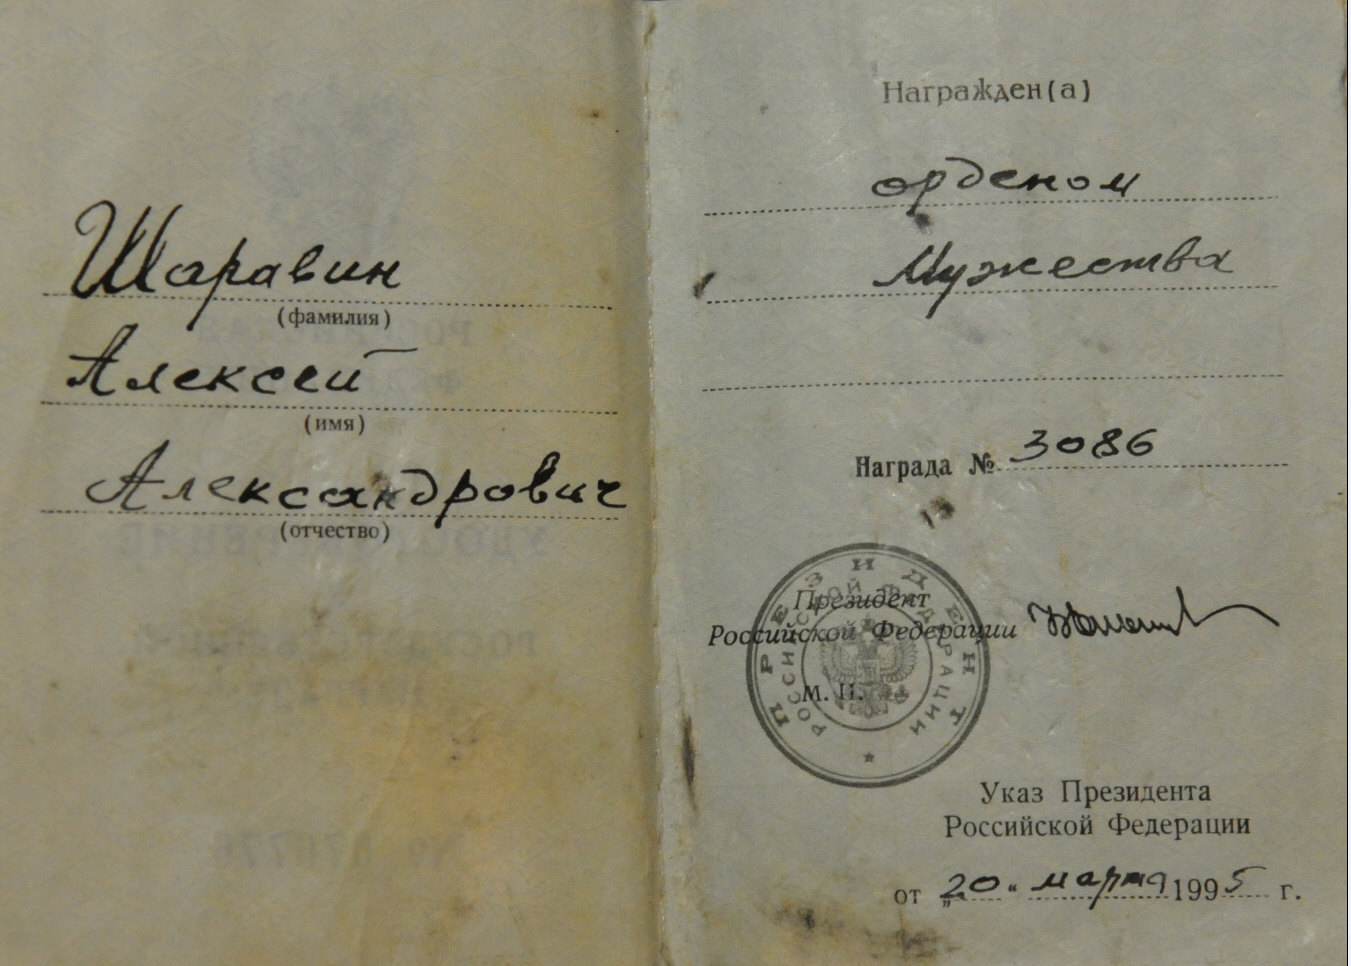 Шаравин
(фамилия)
Алексей
(имя)
Александрович
(отчество)
Награжден(а)
орденом
Мужества
Награда № 3086
Президент
Российской Федерации
М. П.
ПРЕЗИДЕНТ
РОССИЙСКОЙ ФЕДЕРАЦИИ
Указ Президента
Российской Федерации
от „20“ марта 1995 г.